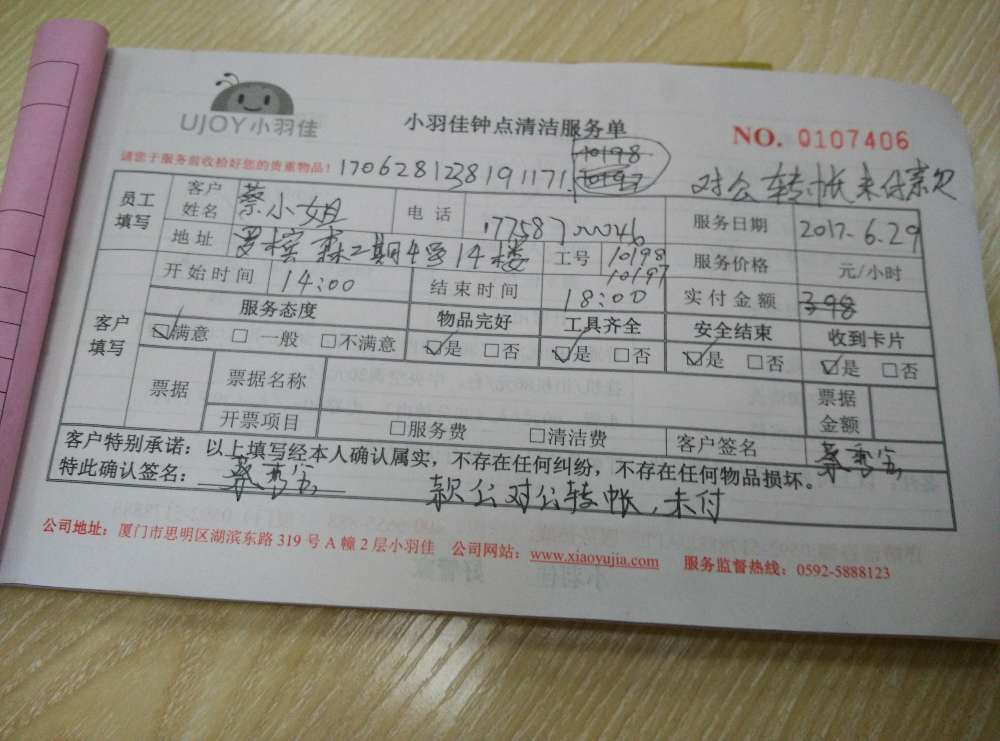 UJOY小羽佳
小羽佳钟点清洁服务单
NO. 0107406
请您于服务前收检好您的贵重物品！
10198
10197
对公转帐未付款
员工填写 客户姓名 蔡小姐 电话 服务日期 2017.6.29
地址 二期4号14楼 工号 10198 10197 服务价格 元/小时
开始时间 14:00 结束时间 18:00 实付金额 398
客户填写 服务态度 物品完好 工具齐全 安全结束 收到卡片
☑满意 □一般 □不满意 ☑是 □否 ☑是 □否 ☑是 □否 ☑是 □否
票据 票据名称 票据金额
开票项目 □服务费 □清洁费 客户签名 蔡
客户特别承诺：以上填写经本人确认属实，不存在任何纠纷，不存在任何物品损坏。
特此确认签名：蔡 款公对公转帐，未付
公司地址：厦门市思明区湖滨东路 319 号 A 幢 2 层小羽佳 公司网站：www.xiaoyujia.com 服务监督热线：0592-5888123